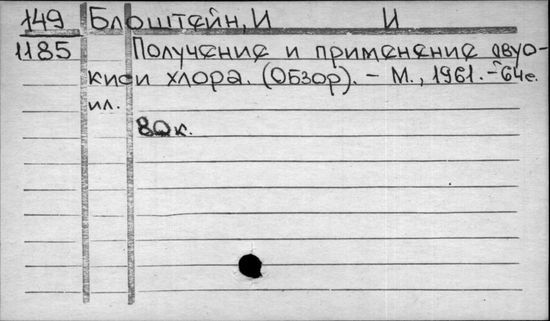 149 Блоштейн, И И
1185 Получение и применение двуо-
киси хлора. (Обзор). – М., 1961. – 64с.
ил.
80к.